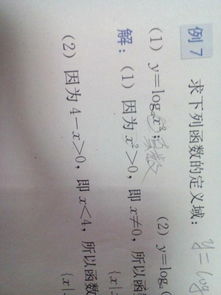 例 7 求下列函数的定义域：
(1) y=logₐx²； (2) y=logₐ(
解：(1) 因为 x²>0，即 x≠0，所以函
{x|
(2) 因为 4－x>0，即 x<4，所以函数
{x|
y = log